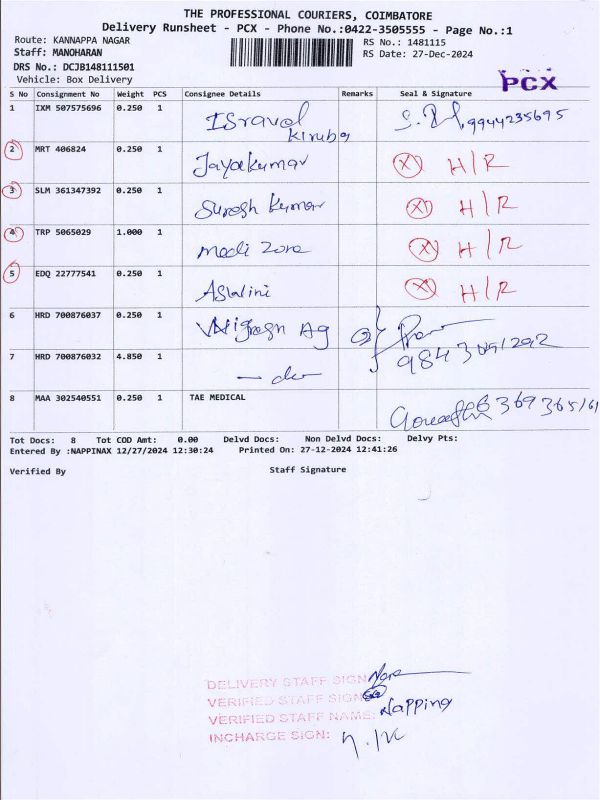 THE PROFESSIONAL COURIERS, COIMBATORE
Delivery Runsheet - PCX - Phone No.:0422-3505555 - Page No.:1
Route: KANNAPPA NAGAR
RS No.: 1481115
Staff: MANOHARAN
RS Date: 27-Dec-2024
DRS No.: DCJB148111501
Vehicle: Box Delivery
PCX
S No Consignment No Weight PCS Consignee Details Remarks Seal & Signature
1 IXM 507575696 0.250 1 Isravel Kiruba 9944235695
2 MRT 406824 0.250 1 Jayakumar X H/R
3 SLM 361347392 0.250 1 Suresh Kumar X H/R
4 TRP 5065029 1.000 1 Medi Zone X H/R
5 EDQ 22777541 0.250 1 Aswini X H/R
6 HRD 700876037 0.250 1 Ag
7 HRD 700876032 4.850 1 — do —
8 MAA 302540551 0.250 1 TAE MEDICAL
Tot Docs: 8 Tot COD Amt: 0.00 Delvd Docs: Non Delvd Docs: Delvy Pts:
Entered By :NAPPINAX 12/27/2024 12:30:24 Printed On: 27-12-2024 12:41:26
Verified By Staff Signature
DELIVERY STAFF SIGN
VERIFIED STAFF SIGN
VERIFIED STAFF NAME: Nappina
INCHARGE SIGN: